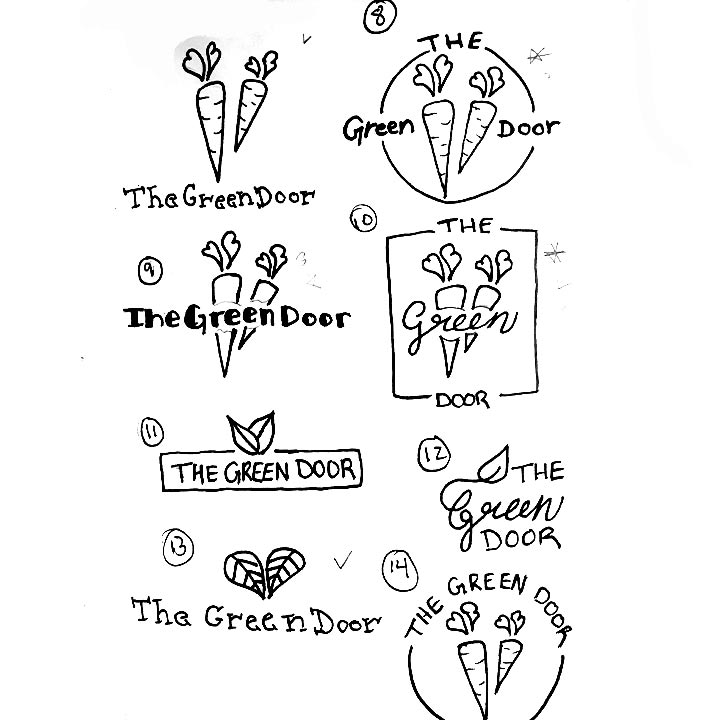 The Green Door
8
THE
Green Door
9
The Green Door
10
THE
Green
DOOR
11
THE GREEN DOOR
12
THE
Green
DOOR
13
The Green Door
14
THE GREEN DOOR